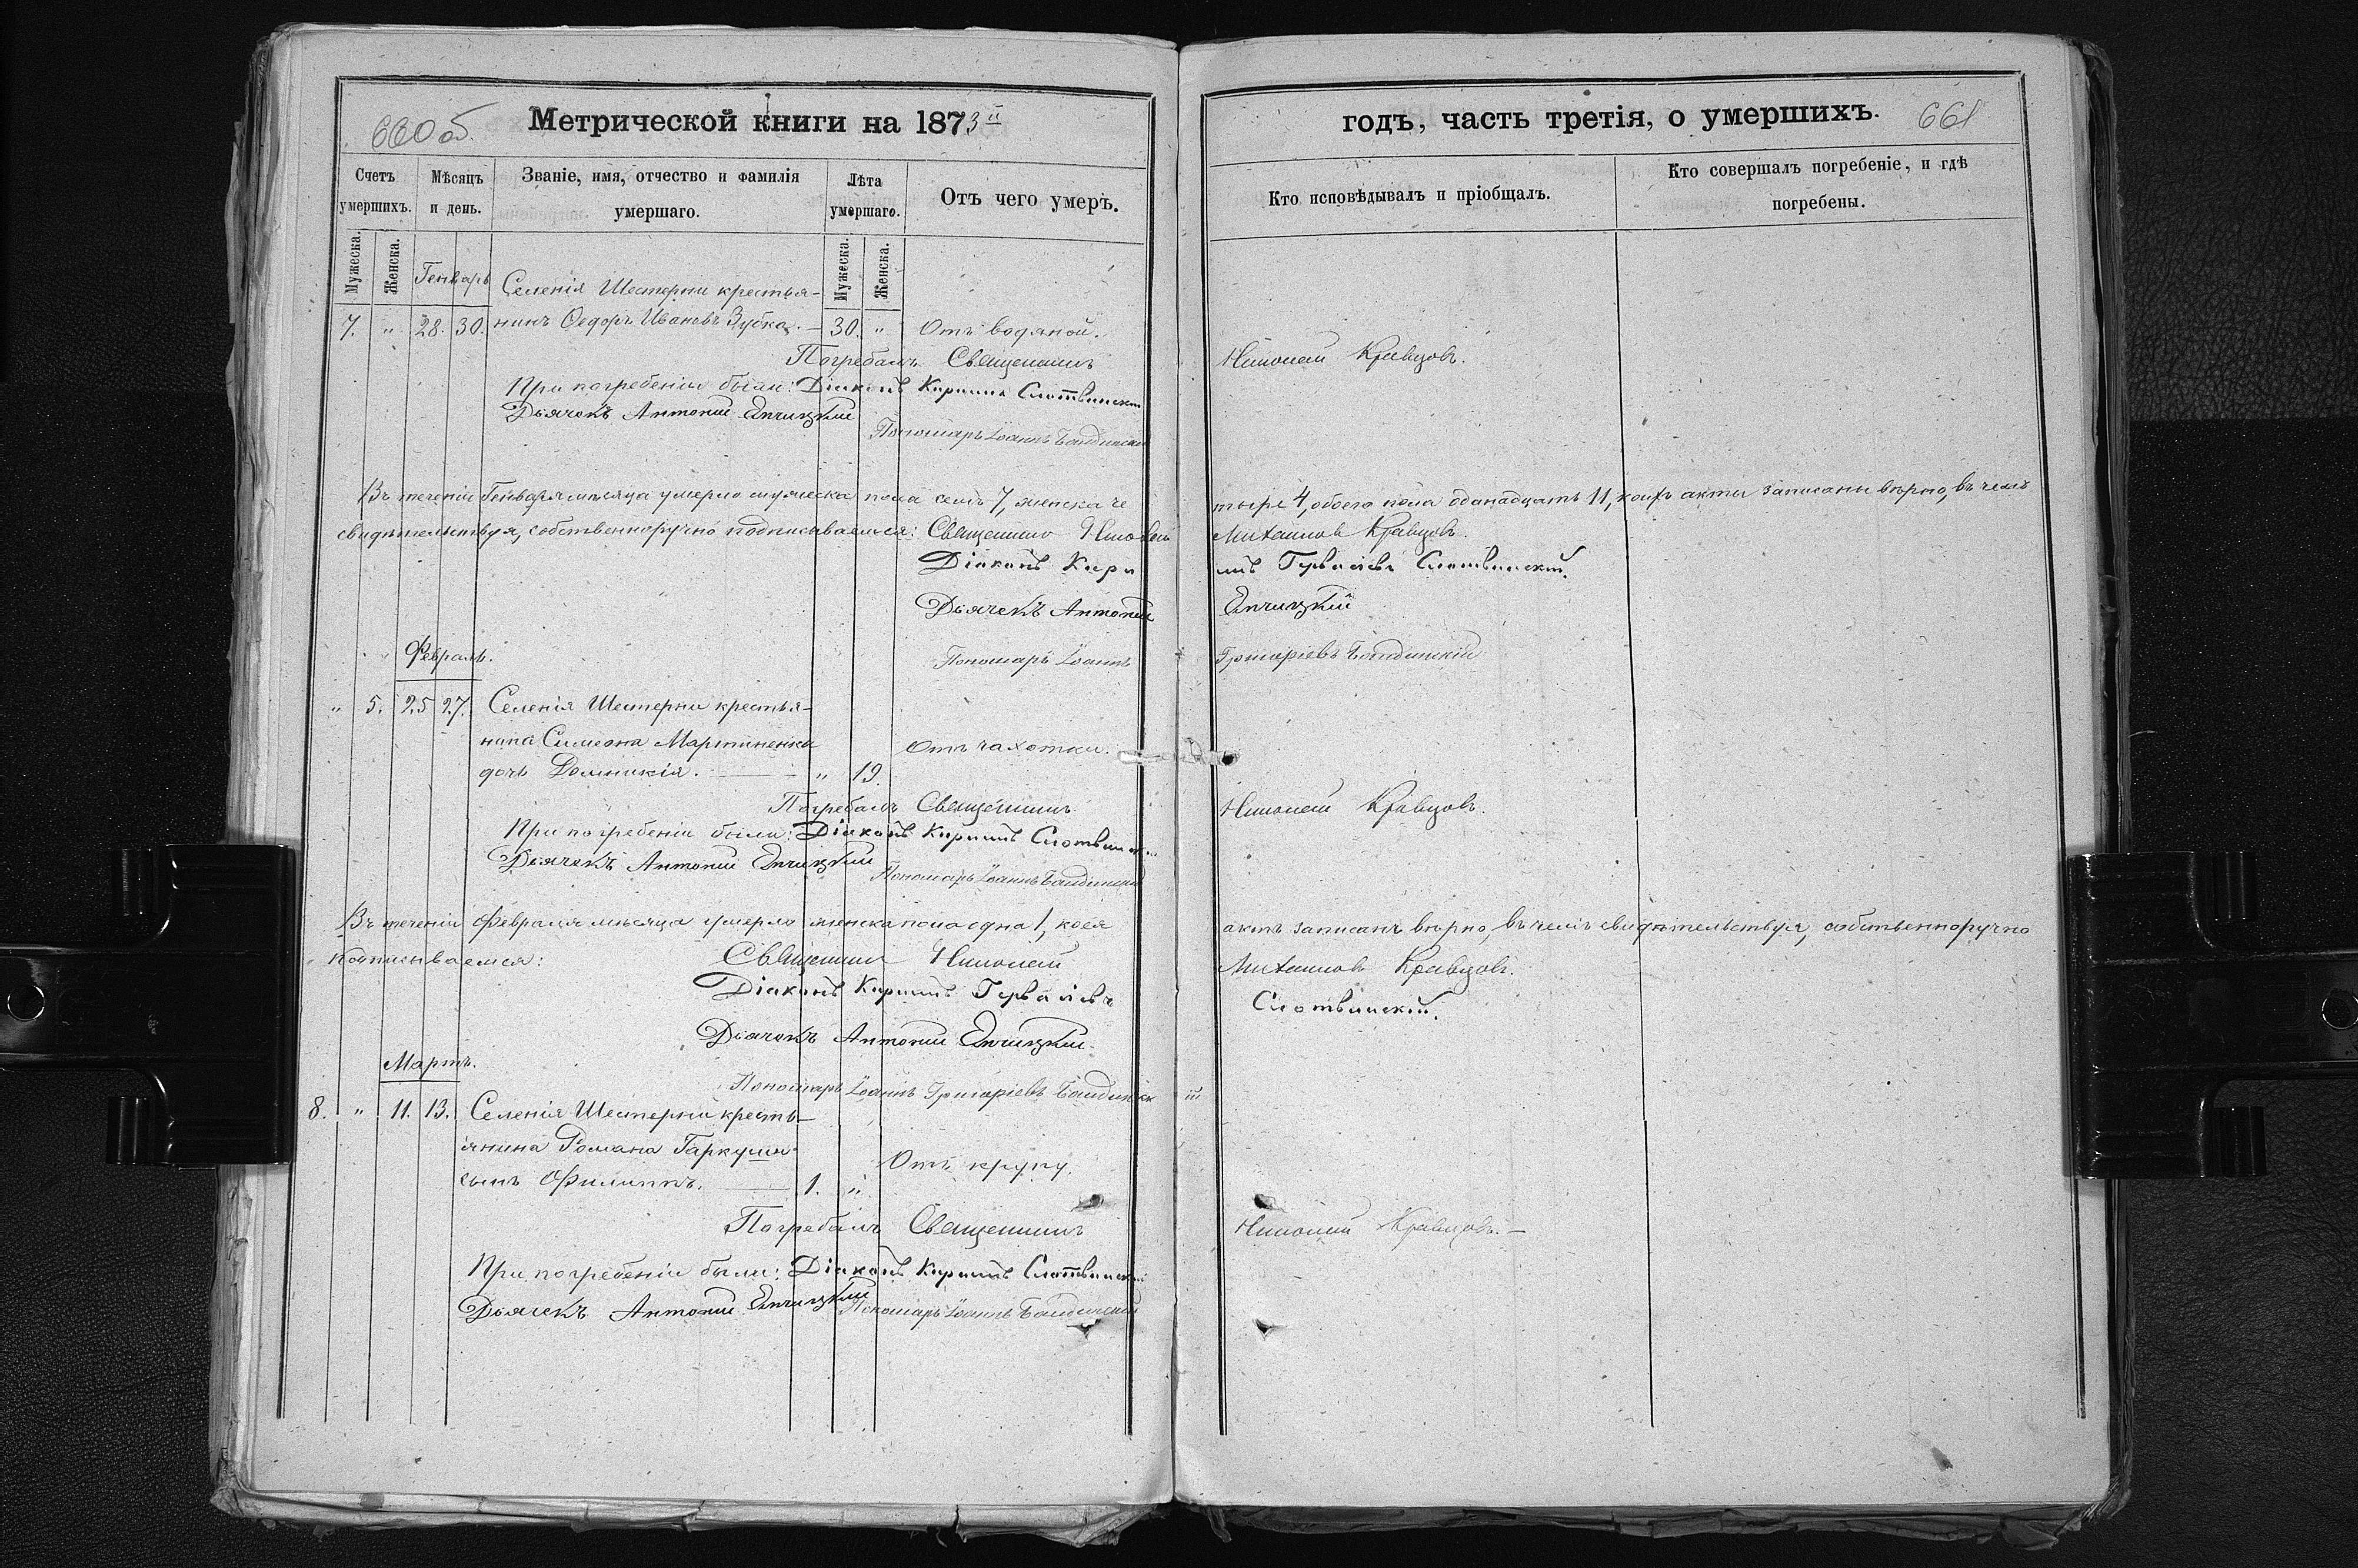 660 об.
Метрической книги на 1873й
годъ, часть третія, о умершихъ.
661
Счетъ умершихъ.
Мѣсяцъ и день.
Званіе, имя, отчество и фамилія умершаго.
Лѣта умершаго.
Отъ чего умеръ.
Кто исповѣдывалъ и пріобщалъ.
Кто совершалъ погребеніе, и гдѣ погребены.
Мужеска.
Женска.
Мужеска.
Женска.
Генварь
Селенія Шестерни крестья-
7. " 28. 30. нинъ Ѳедоръ Ивановъ Зубка. — 30. " Отъ водяной.
Погребалъ Священникъ Николай Кравцовъ.
При погребеніи были: Діаконъ Кириллъ Слотвинскій
Дьячекъ Антоній
Пономарь Іоаннъ
Въ теченіи Генваря мѣсяца умерло мужеска пола семь 7, женска че
тыре 4, обоего пола одинадцать 11, коихъ акты записаны вѣрно, въ чемъ
свидѣтельствуя, собственноручно подписываемся: Священникъ Николай
Михаиловъ Кравцовъ.
Діаконъ Кири
лъ Слотвинскій.
Дьячекъ Антоній
Пономарь Іоаннъ
Григоріевъ
Февраль.
" 5. 25 27. Селенія Шестерни крестья-
нина Симеона Мартиненка Отъ чахотки.
дочь Домникія. — " 19
Погребалъ Священникъ Николай Кравцовъ.
При погребеніи были: Діаконъ Кириллъ Слотвинскій
Дьячекъ Антоній
Пономарь Іоаннъ
Въ теченіи Февраля мѣсяца умерло женска пола одна 1, коея
актъ записанъ вѣрно, въ чемъ свидѣтельствуя, собственноручно
подписываемся: Священникъ Николай
Михаиловъ Кравцовъ.
Діаконъ Кириллъ
Слотвинскій.
Дьячокъ Антоній
Мартъ.
Пономарь Іоаннъ Григоріевъ
8. " 11. 13. Селенія Шестерни кресть-
янина Романа Гаркуши Отъ крупу.
сынъ Филиппъ. — 1. "
Погребалъ Священникъ Николай Кравцовъ. —
При погребеніи были: Діаконъ Кириллъ Слотвинскій
Дьячекъ Антоній
Пономарь Іоаннъ